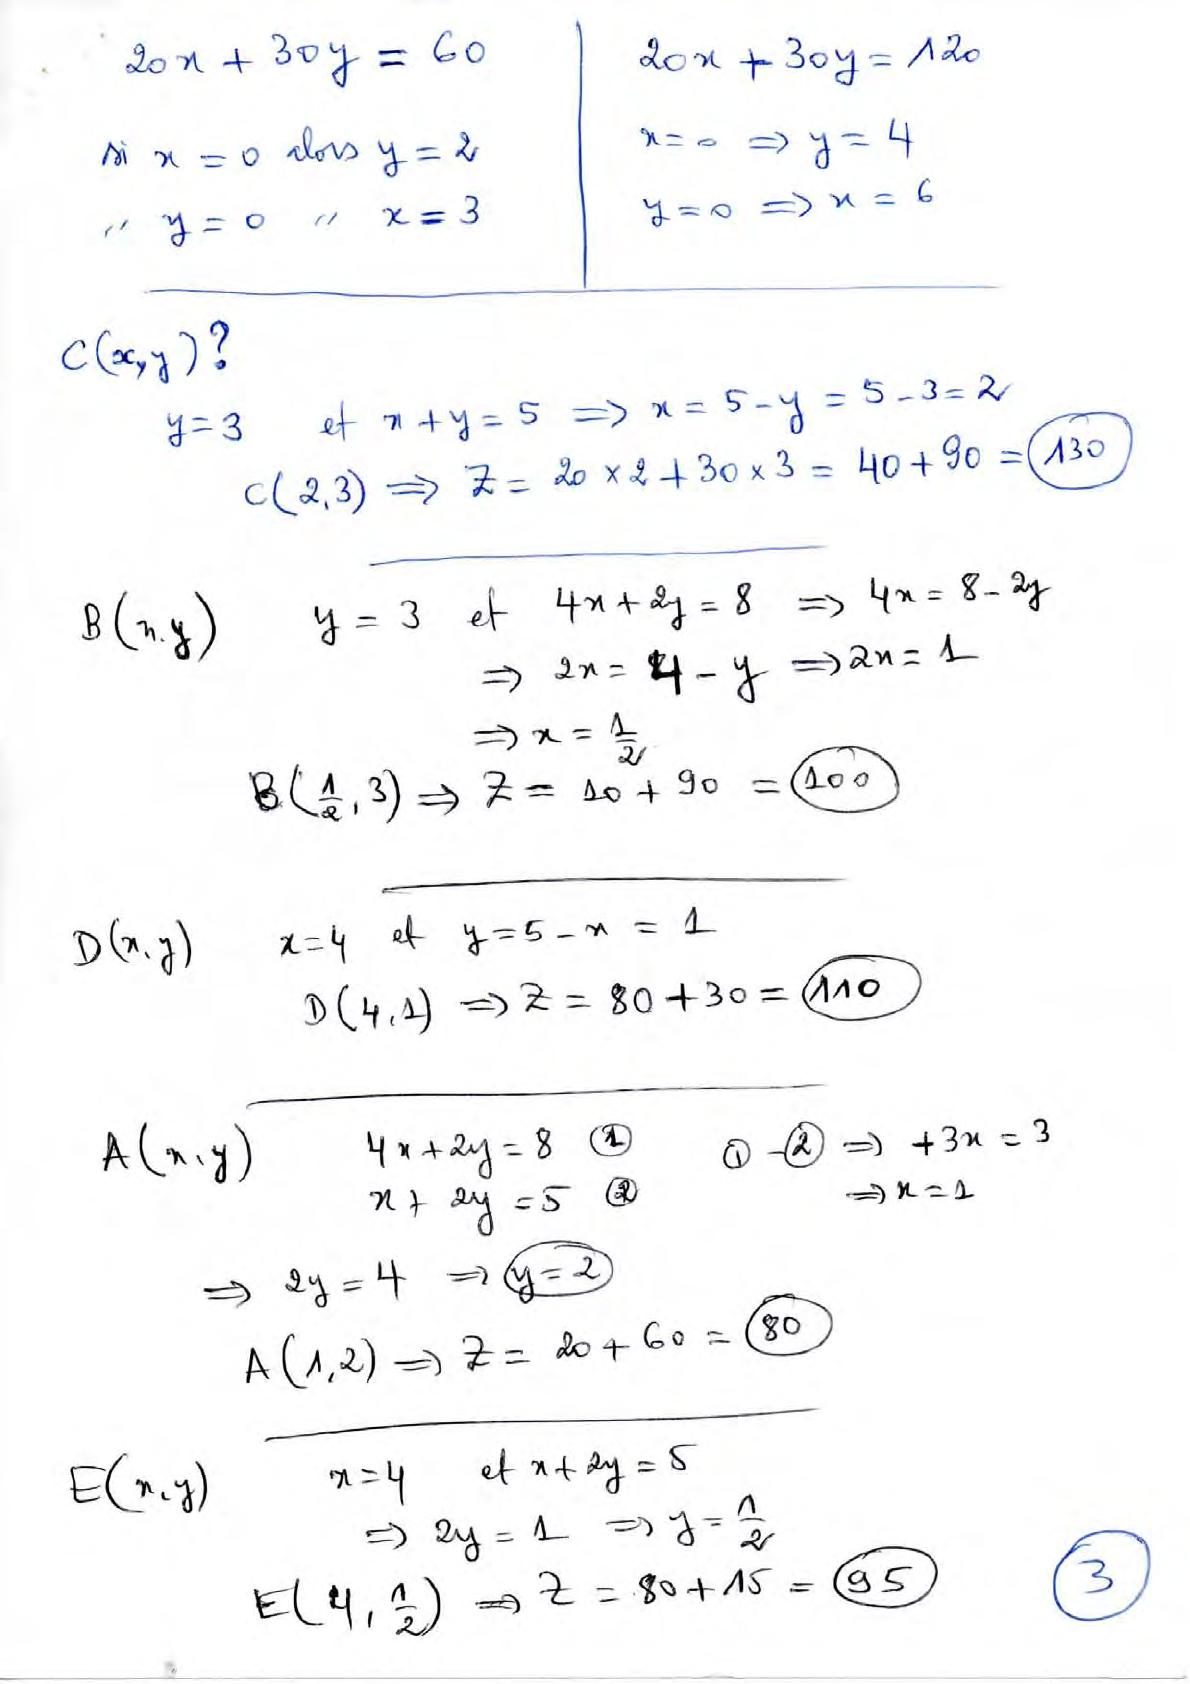 20x + 30y = 60
si x = 0 alors y = 2
〃 y = 0 〃 x = 3
20x + 30y = 120
x = 0 ⇒ y = 4
y = 0 ⇒ x = 6
C(x,y)?
y = 3 et x + y = 5 ⇒ x = 5 - y = 5 - 3 = 2
C(2,3) ⇒ Z = 20 × 2 + 30 × 3 = 40 + 90 = 130
B(x,y) y = 3 et 4x + 2y = 8 ⇒ 4x = 8 - 2y
⇒ 2x = 4 - y ⇒ 2x = 1
⇒ x = 1/2
B(1/2, 3) ⇒ Z = 10 + 90 = 100
D(x,y) x = 4 et y = 5 - x = 1
D(4,1) ⇒ Z = 80 + 30 = 110
A(x,y) 4x + 2y = 8 ① ① - ② ⇒ +3x = 3
x + 2y = 5 ② ⇒ x = 1
⇒ 2y = 4 ⇒ y = 2
A(1,2) ⇒ Z = 20 + 60 = 80
E(x,y) x = 4 et x + 2y = 5
⇒ 2y = 1 ⇒ y = 1/2
E(4, 1/2) ⇒ Z = 80 + 15 = 95
3